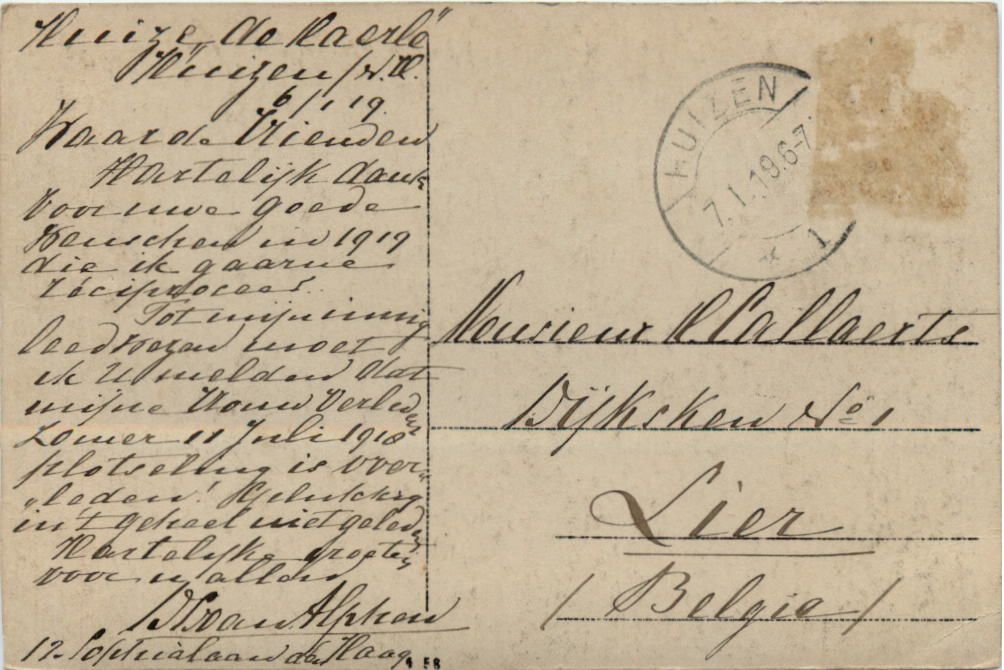 Huize "de Kaerle"
Huizen / N.H.
6/1 19.
Waarde Vrienden
Hartelijk dank
voor uwe goede
Wenschen in 1919
die ik gaarne
reciproceer.
Tot mijn innig
leedwezen moet
ik U melden dat
mijne Vrouw Verleden
Zomer 11 Juli 1918
plotseling is over-
"leden! Gelukkig
in 't geheel niet geleden
Hartelijke groeten
voor u allen
van Alphen
12 Sophialaan den Haag
HUIZEN
7.1.19.6-7
1
Monsieur Callaerts
Dijksken No 1
Lier
/ Belgie /
58